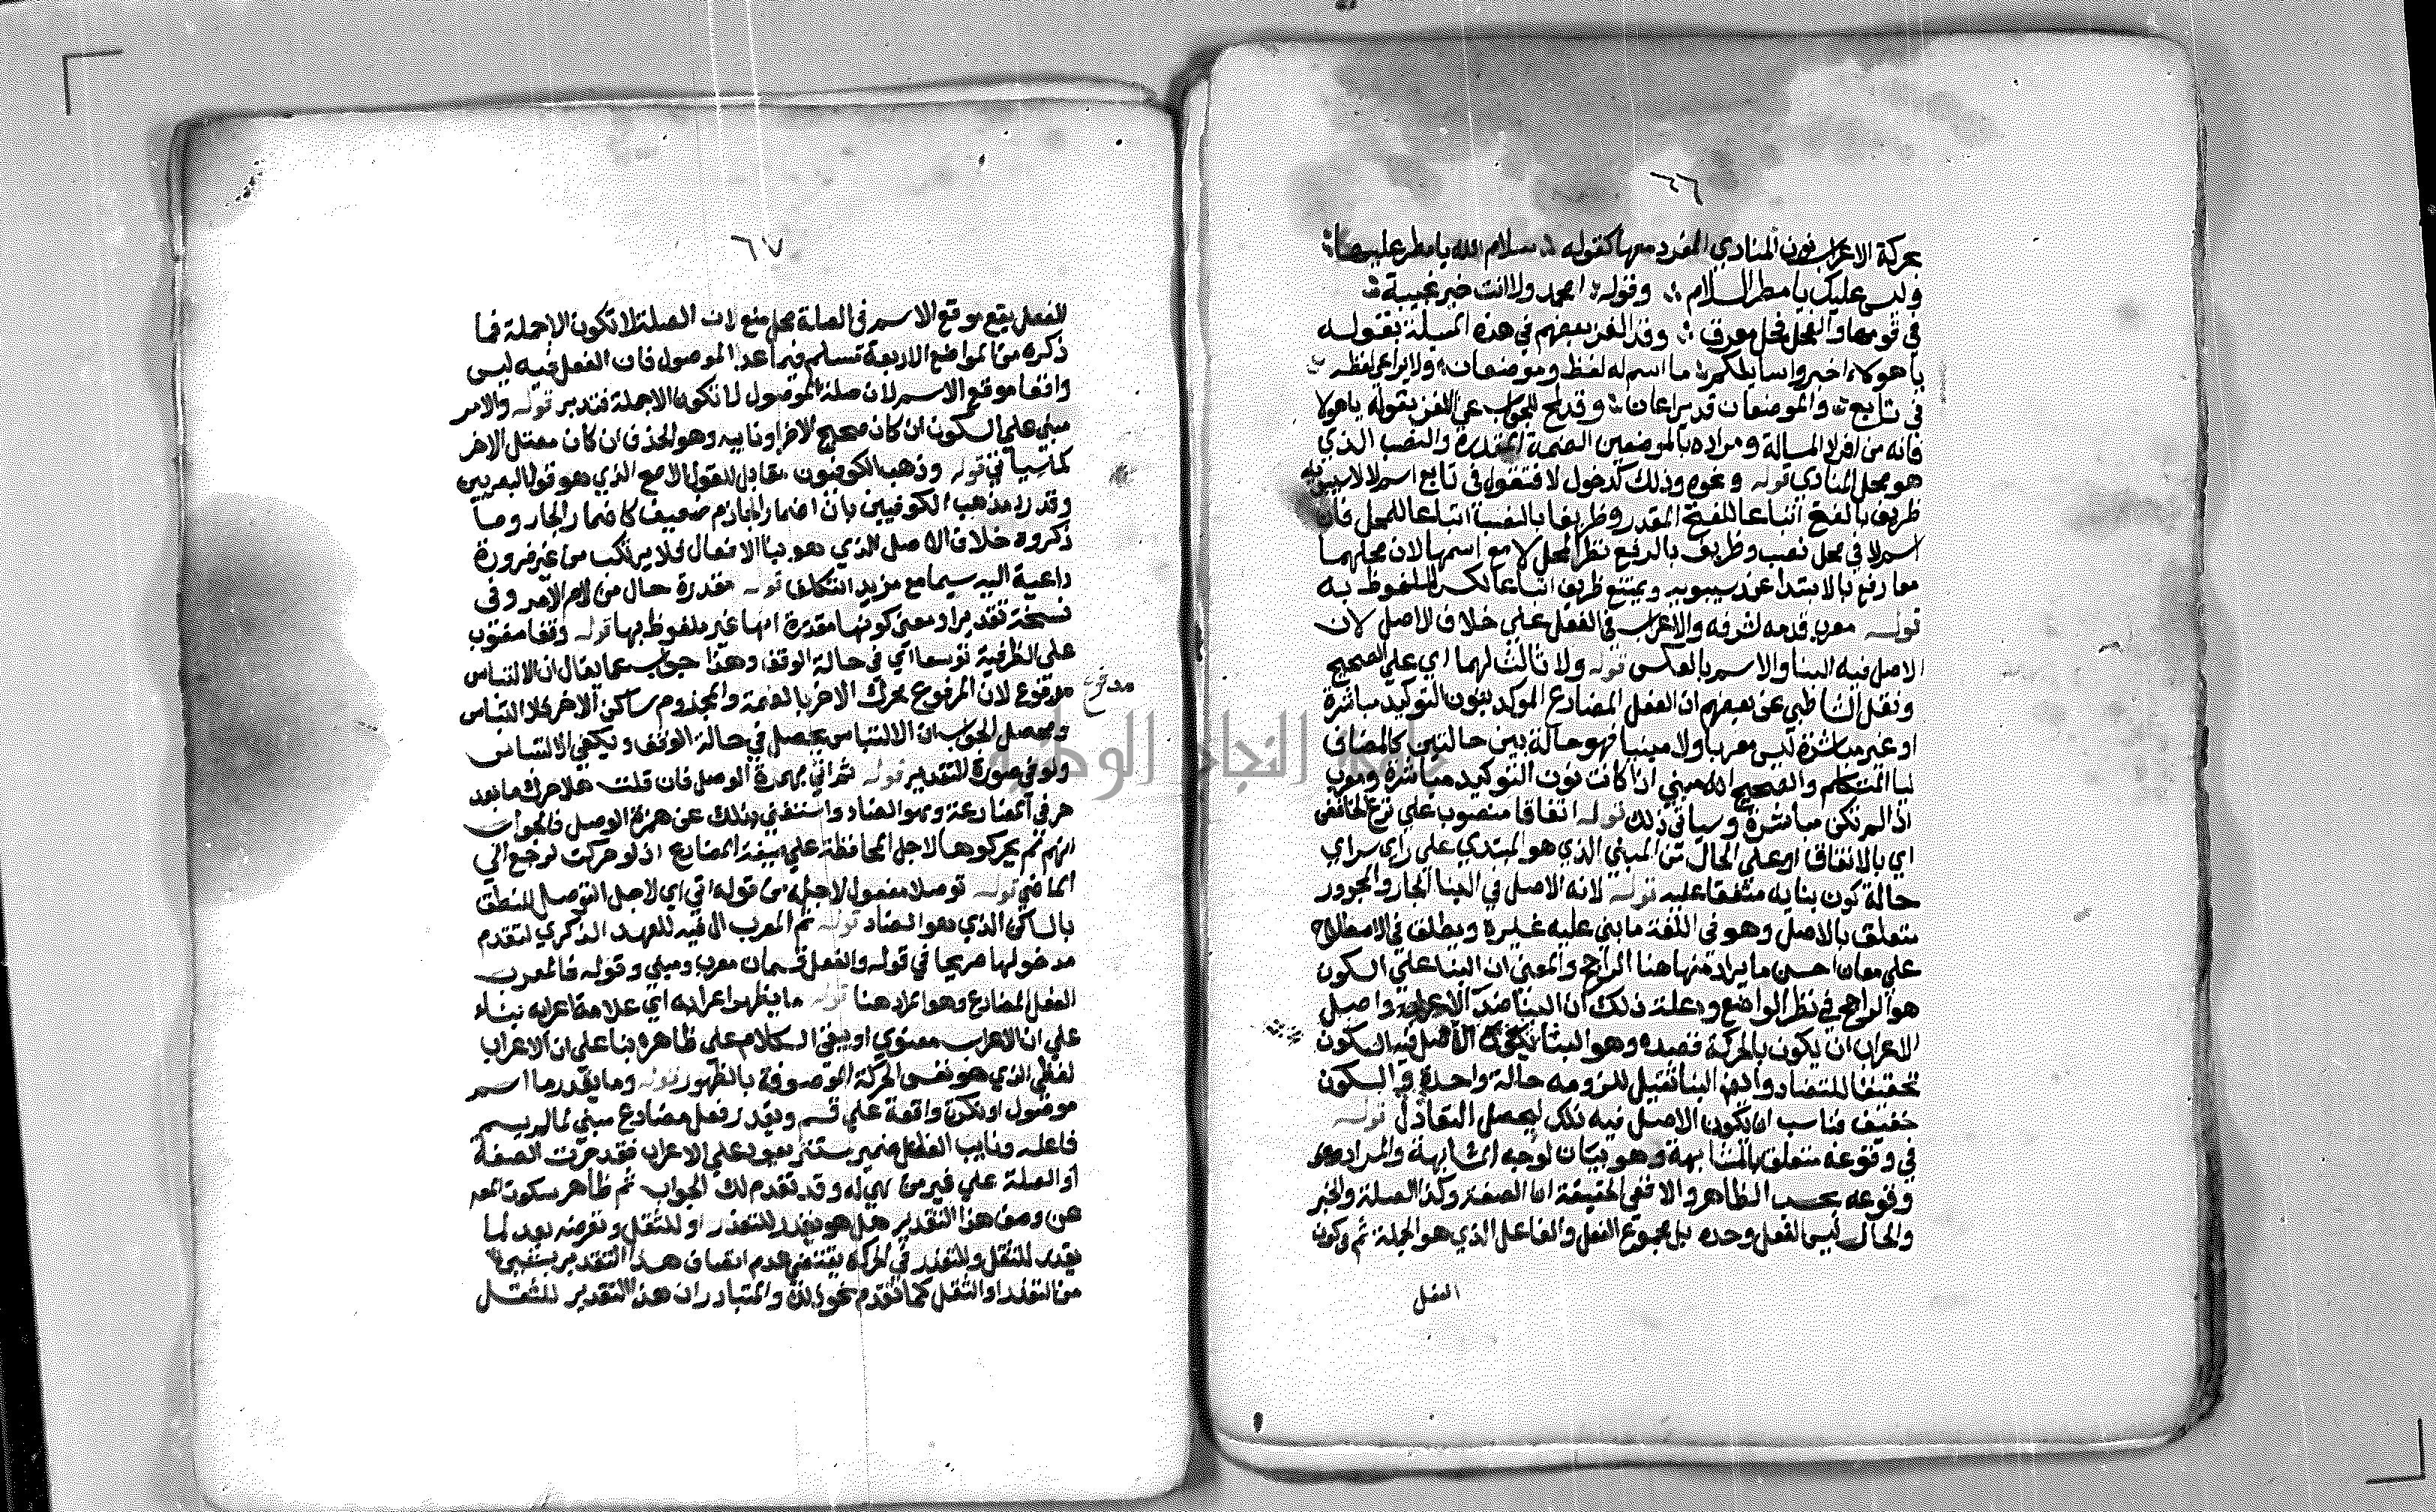 ٦٦
بحركة الاعراب نون المنادي المفرد منها كقوله سلام الله يا مطر عليها
وليس عليك يا مطر السلام وقوله امحمد ولانت خير نجيبة
في قومها والفحل فحل معرق وقد الغز بعضهم في هذه المسيلة بقوله
يا هولاء اخبروا سايلكم ما اسم له لفظ وموضعان ولا يراعي لفظه
في تابع والموضعان قد يراعان وقد لمح للجواب عن اللغز بقوله ياهولا
فانه من افراد المسالة ومراده بالموضعين الضمة المقدرة والنصب الذي
هو محل المنادي قوله ونحوه وذلك كدخول لا فتقول في تابع اسم لا لاسيبويه
ظريف بالفتح اتباعا للفتح المقدر وظريفا بالنصب اتباعا للمحل فان
اسم لا في محل نصب وظريف بالرفع نظرا لمحل لا مع اسمها لان محلهما
معا رفع بالابتدا عند سيبويه ويمتنع ظريف اتباعا لكسر الملفوظ به
قوله معرب قدمه لشرفه والاعراب في الفعل علي خلاف الاصل لان
الاصل فيه البنا والاسم بالعكس قوله ولا ثالث لهما اي علي الصحيح
ونقل الشاطبي عن بعضهم ان الفعل المضارع الموكد بنون التوكيد مباشرة
او غير مباشرة ليس معربا ولا مبنيا فهو حالة بين حالتين كالمضاف
ليا المتكلم والصحيح انه مبني اذا كانت نون التوكيد مباشرة ومعرب
اذا لم تكن مباشرة وسياتي ذلك قوله اتفاقا منصوب علي نزع الخافض
اي بالاتفاق او علي الحال من المبني الذي هو المبتدي علي راي سراي
حالة كون بنايه متفقا عليه قوله لانه الاصل في البنا الجار والمجرور
متعلق بالاصل وهو في اللغة ما بني عليه غيره ويطلق في الاصطلاح
علي معان احسن ما يراد منها هنا الراجح والمعني ان البنا علي السكون
هو الراجح في نظر الواضع وعلة ذلك ان البنا ضد الاعراب واصل
الاعراب ان يكون بالحركة فضده وهو البنا يكون الاصل فيه السكون
تحقيقا للتضاد وايضا البنا ثقيل للزومه حالة واحدة والسكون
خفيف فناسب ان يكون الاصل فيه ذلك ليحصل التعادل قوله
في وقوعه متعلق بالمشابهة وهو بيان لوجه المشابهة والمراد
وقوعه بحسب الظاهر والا ففي الحقيقة ان الصفة وكذا الصلة والخبر
والحال ليس الفعل وحده بل مجموع الفعل والفاعل الذي هو الجملة ثم وكون
الفعل
٦٧
الفعل يقع موقع الاسم في الصلة محل منع لان الصلة لا تكون الا جملة فما
ذكره من المواضع الاربعة تسلم فيما عدا الموصول فان الفعل فيه ليس
واقعا موقع الاسم لان صلة الموصول لا تكون الا جملة فتدبر قوله والامر
مبني علي السكون ان كان صحيح الاخر او نايبه وهو الحذف ان كان معتل الاخر
كما سياتي قوله وذهب الكوفيون مقابل للقول الاصح الذي هو قول البصريين
وقد رد مذهب الكوفيين بان اضمار الجازم ضعيف كاضمار الجار وما
ذكروه خلاف الاصل الذي هو بنا الافعال فلا يرتكب من غير ضرورة
داعية اليه سيما مع مزيد التكلف قوله مقدرة حال من لام الامر وفي
نسخة تقديرا ومعني كونها مقدرة انها غير ملفوظ بها قوله وقفا منصوب
علي الظرفية توسعا اي في حالة الوقف وهذا جواب عما يقال ان الالتباس
مدفوع لان المرفوع يحرك الاخر بالضمة والمجزوم ساكن الاخر فلا التباس
مدفوع
ومحصل الجواب ان الالتباس يحصل في حالة الوقف ويكفي الالتباس
ولو في صورة للتقدير قوله ثم اتي بهمزة الوصل فان قلت هلا حرك ما بعد
حرف المضارعة وهو الضاد واستغني بذلك عن همزة الوصل فالجواب
انهم لم يحركوها لاجل المحافظة علي صيغة المضارع اذ لو حركت لرجع الي
الماضي قوله توصلا مفعول لاجله من قوله اتي اي لاجل التوصل للنطق
بالساكن الذي هو الضاد قوله ثم المعرب ال فيه للعهد الذكري لتقدم
مدخولها صريحا في قوله والفعل قسمان معرب ومبني وقوله فالمعرب
الفعل المضارع وهو المراد هنا قوله ما يظهر اعرابه اي علامة اعرابه بناء
علي ان الاعراب معنوي او يبقي الكلام علي ظاهره بنا علي ان الاعراب
لفظي الذي هو نفس الحركة الموصوفة بالظهور قوله وما يقدر ما اسم
موصول او نكرة واقعة علي قسم ويقدر فعل مضارع مبني لما لم يسم
فاعله ونايب الفاعل ضمير مستتر يعود علي الاعراب فقد جرت الصفة
او الصلة علي غير من هي له وقد تقدم لك الجواب ثم ظاهر سكوت المص
عن وصف هذا التقدير هل هو يقدر للتعذر او للثقل وتعرضه بعد لما
يقدر للثقل وللتعذر في الحركة يقتضي عدم اتصاف هذا التقدير بشي
من التعذر او الثقل كما تقدم نحو ذلك والمتبادر ان هذا التقدير للثقل
جامعة النجاح الوطنية